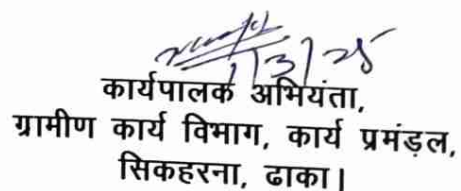 1/3/25
कार्यपालक अभियंता,
ग्रामीण कार्य विभाग, कार्य प्रमंड़ल,
सिकहरना, ढाका।